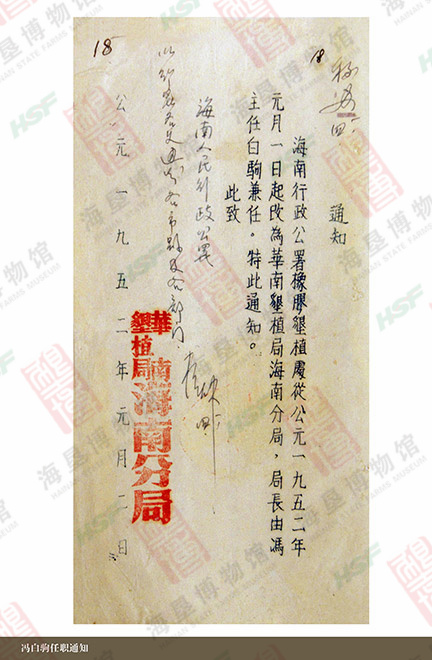 18
18
通知
海南行政公署橡膠墾植處從公元一九五二年
元月一日起改為華南墾植局海南分局，局長由馮
主任白駒兼任。特此通知。
此致
海南人民行政公署
公元一九五二年元月二日
華南
墾植局海南分局
冯白驹任职通知
海垦博物馆
HAINAN STATE FARMS MUSEUM
HSF